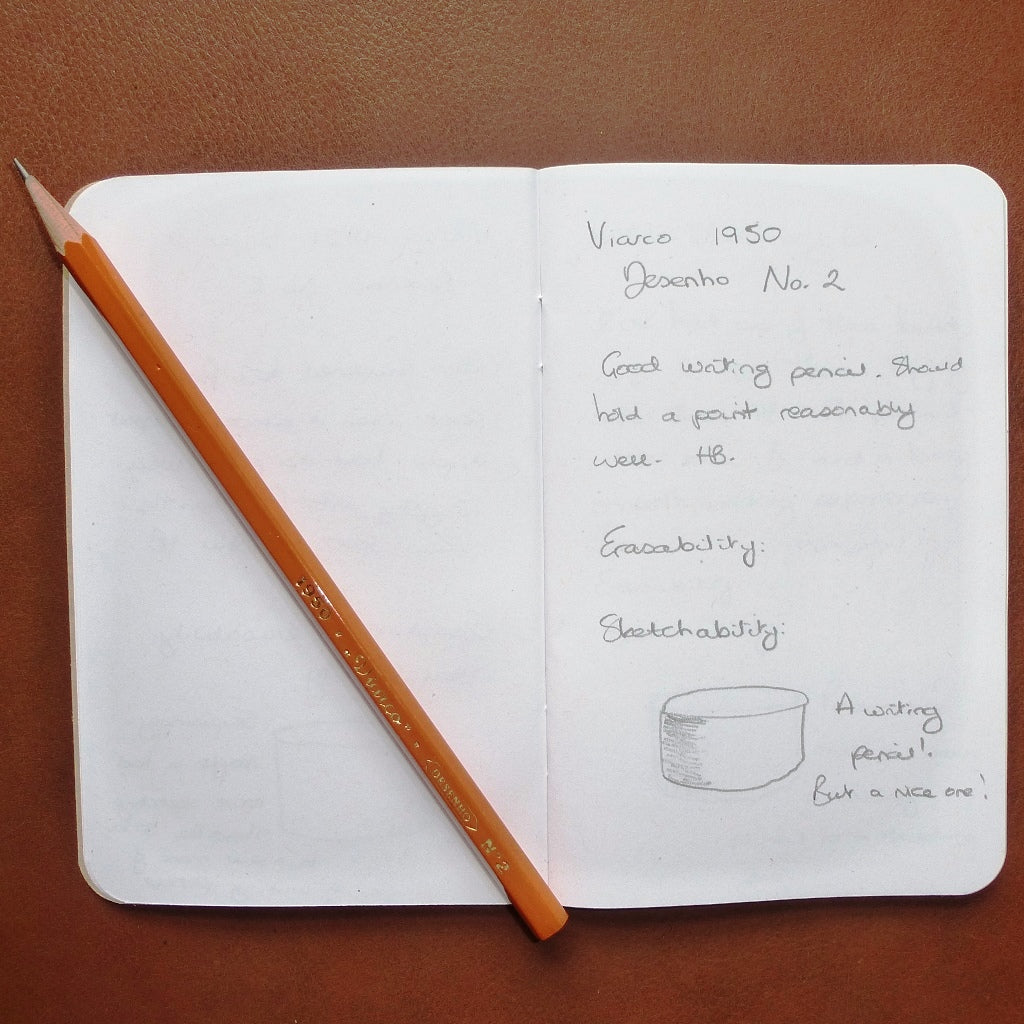 Viarco 1950
Desenho No. 2
Good writing pencil. Should
hold a point reasonably
well. HB.
Erasability:
Sketchability:
A writing
pencil!
But a nice one!
1950 - "Viarco" - (DESENHO) Nº 2